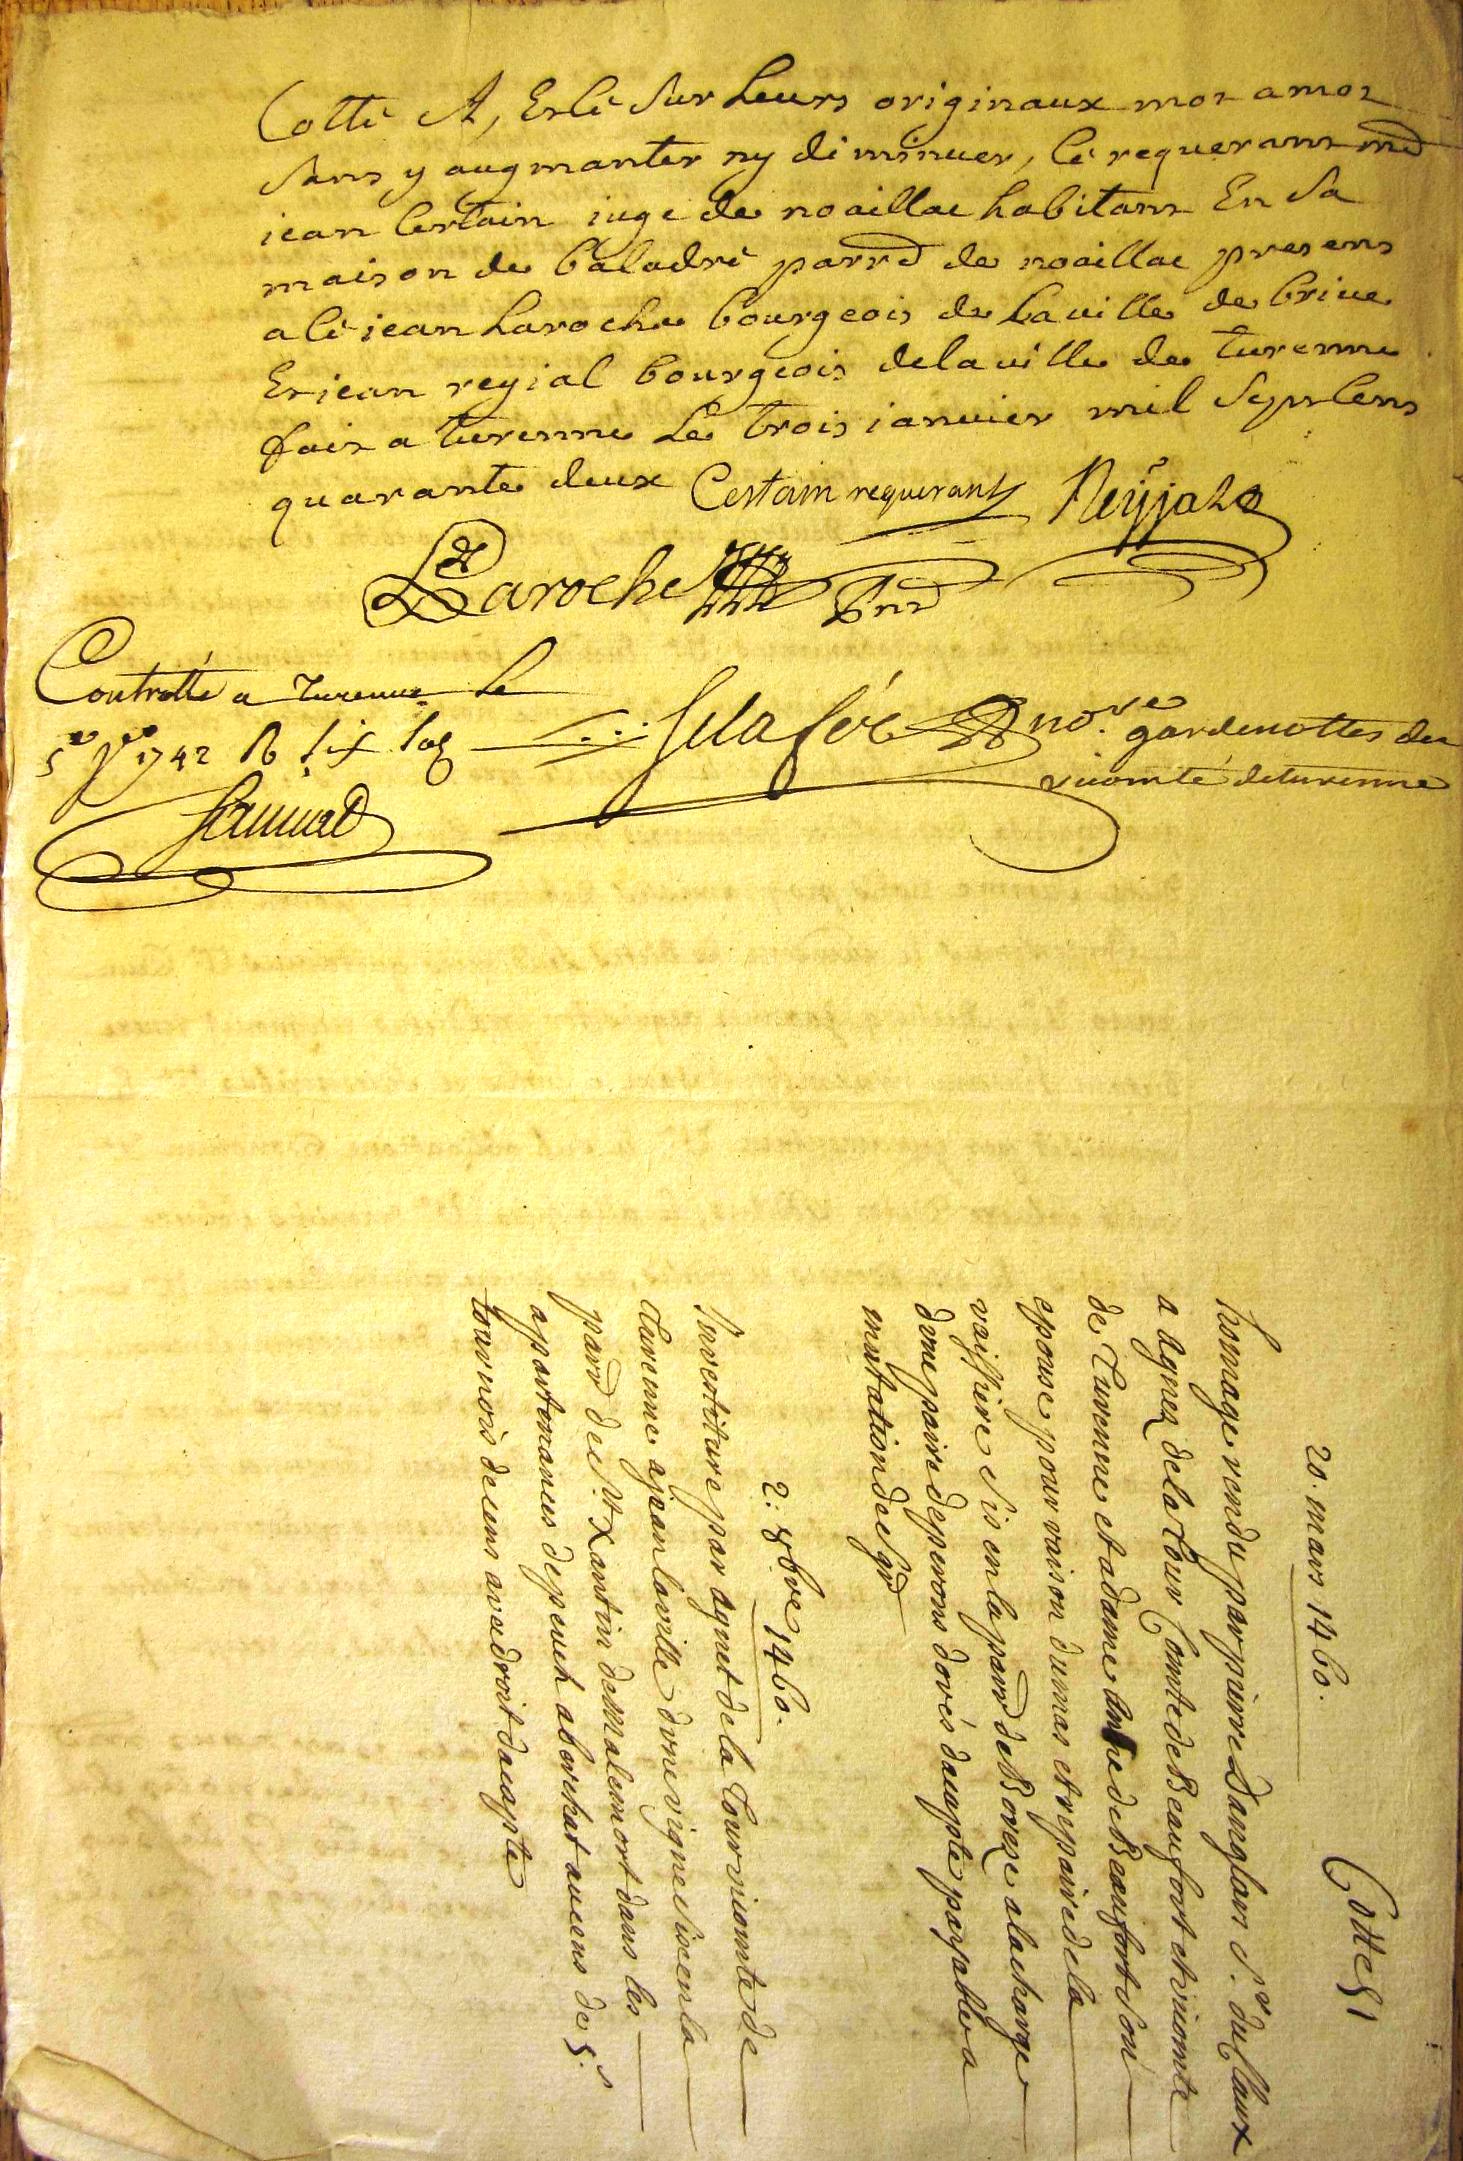 Cotté A, Et lé sur Leurs originaux mot a mot
sans y augmanter ny diminuer, lé requerant md
iean Certain iuge de noaillac habitant En sa
maison de baladré parrd de noaillac presens
a lé jean Laroche bourgeois de La ville de brive
Et iean reyjal bourgeois de la ville de turenne
fait a turenne Le trois ianvier mil sept Cens
quarante deux Certain requerant Reyjal
Laroche pnd
Controllé a Turenne Le
5e 1742 R six sols
nore gardenottes du
vicomté de turenne
Cotte 51
20. mars 1460.
homage rendu par pierre Danglars Sr. du Claux
a Agnes de la Tour Comte de Beaufort et vicomte
de Turenne et a dame Anne de Beaufort son
epouse pour raison du mas et repaire de la
vaissiere sis en la parrd de Boreze a la charge
d'une paire deperons dorés dacapte payables a
mutation de Sgr
2. 8bre 1460.
Investiture par agnet de la Tour vicomte de
Turenne a jean laville d'une vigne size en la
parrd de St Xantin de Malemort dans les
appartenances depeuch aberchat au cens de 5 s
tournois de cens avec droit dacapte